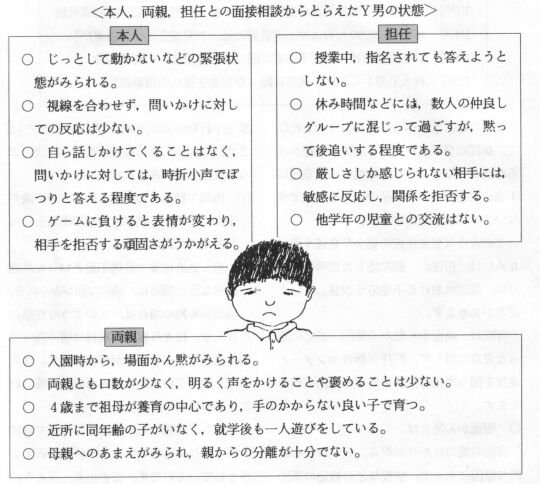 ＜本人，両親，担任との面接相談からとらえたＹ男の状態＞
本人
○ じっとして動かないなどの緊張状
態がみられる。
○ 視線を合わせず，問いかけに対し
ての反応は少ない。
○ 自ら話しかけてくることはなく，
問いかけに対しては，時折小声でぽ
つりと答える程度である。
○ ゲームに負けると表情が変わり，
相手を拒否する頑固さがうかがえる。
担任
○ 授業中，指名されても答えようと
しない。
○ 休み時間などには，数人の仲良し
グループに混じって過ごすが，黙っ
て後追いする程度である。
○ 厳しさしか感じられない相手には，
敏感に反応し，関係を拒否する。
○ 他学年の児童との交流はない。
両親
○ 入園時から，場面かん黙がみられる。
○ 両親とも口数が少なく，明るく声をかけることや褒めることは少ない。
○ ４歳まで祖母が養育の中心であり，手のかからない良い子で育つ。
○ 近所に同年齢の子がいなく，就学後も一人遊びをしている。
○ 母親へのあまえがみられ，親からの分離が十分でない。